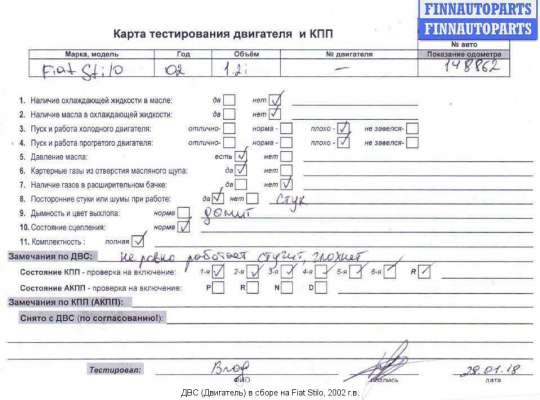 FINNAUTOPARTS
FINNAUTOPARTS
Карта тестирования двигателя и КПП
Марка, модель Год Объём № двигателя № авто Показание одометра
Fiat Stilo 02 1.2i — 148862
1. Наличие охлаждающей жидкости в масле: да нет
2. Наличие масла в охлаждающей жидкости: да нет
3. Пуск и работа холодного двигателя: отлично- норма - плохо- не завелся-
4. Пуск и работа прогретого двигателя: отлично- норма - плохо - не завелся-
5. Давление масла: есть нет
6. Картерные газы из отверстия масляного щупа: да нет
7. Наличие газов в расширительном бачке: да нет
8. Посторонние стуки или шумы при работе: да нет стук
9. Дымность и цвет выхлопа: норма дымит
10. Состояние сцепления: норма
11. Комплектность : полная
Замечания по ДВС: не ровно работает стучит, глохнет
Состояние КПП - проверка на включение: 1-я 2-я 3-я 4-я 5-я 6-я R
Состояние АКПП - проверка на включение: P R N D
Замечания по КПП (АКПП):
Снято с ДВС (по согласованию!):
Тестировал: Влад 28.01.18
ФИО подпись дата
ДВС (Двигатель) в сборе на Fiat Stilo, 2002 г.в.